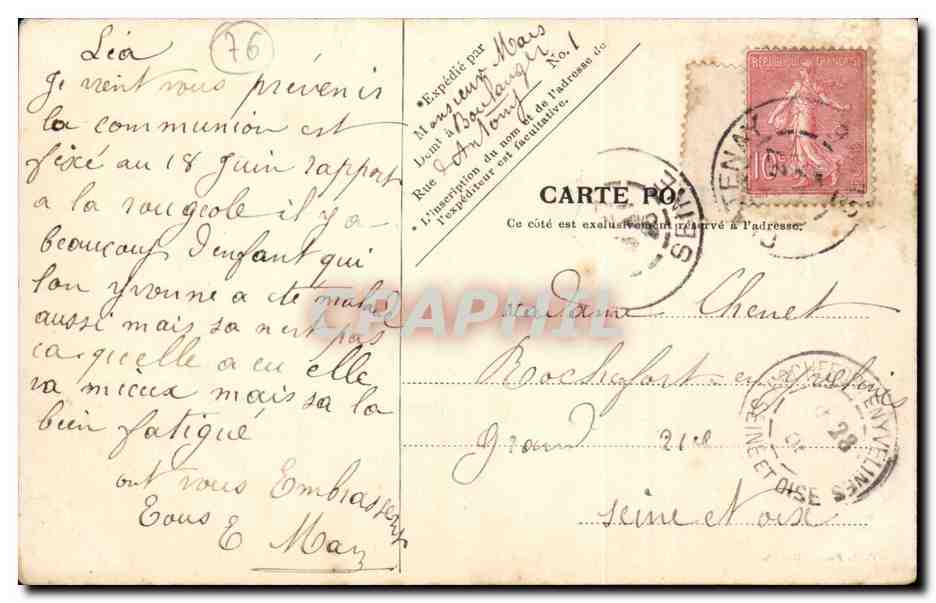 Léa
76
Je vient vous prévenir
la communion est
fixé au 18 Juin rapport
a la rougeole il y a
beaucoup d'enfant qui
lon yvonne a ete malade
aussi mais sa n'est pas
ca quelle a eu elle
va mieux mais sa la
bien fatigué
ont vous Embrassent
Tous E Mars
*Expédié par
Monsieur Mars
Boulanger
Demt à Antony
Rue d No. 1
*L'inscription du nom et de l'adresse de
l'expéditeur est facultative.
CARTE PO
Ce côté est exclusivement réservé à l'adresse.
REPUBLIQUE FRANÇAISE
10c
TENAY
SEINE
Madame Chenet
Rochefort en Yveline
Grand Rue
Seine et Oise
ROCHEFORT EN YVELINES
28
SEINE ET OISE
CPAPHIL